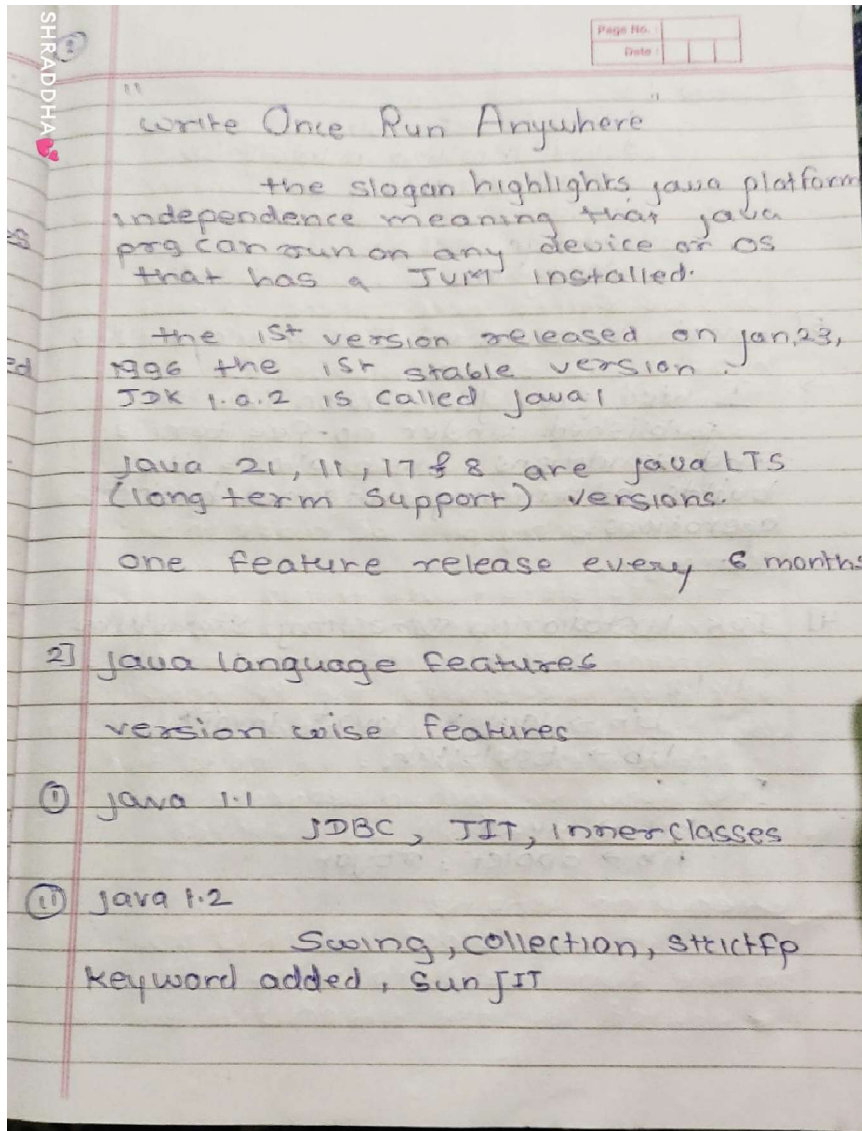 SHRADDHA💕
Page No.
Date
"Write Once Run Anywhere"
the slogan highlights java platform
independence meaning that java
prg can run on any device or OS
that has a JVM installed.
the 1st version released on jan,23,
1996 the 1st stable version.
JDK 1.0.2 is called java1
java 21, 11, 17 & 8 are java LTS
(long term support) versions.
one feature release every 6 months
2] java language features
version wise features
① java 1.1
JDBC, JIT, inner classes
⑪ java 1.2
Swing, collection, strictfp
keyword added, Sun JIT